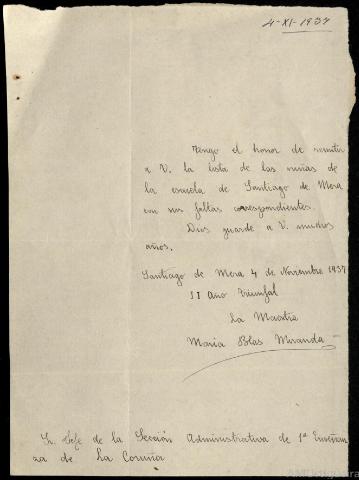 4-XI-1937
Tengo el honor de remitir
a V. la lista de las niñas de
la escuela de Santiago de Mera
con sus faltas correspondientes.
Dios guarde a V. muchos
años.
Santiago de Mera 4 de Noviembre 1937
II Año Triunfal
La Maestra
Maria Blas Miranda
Sr. Jefe de la Sección Administrativa de 1ª Enseñan
za de La Coruña